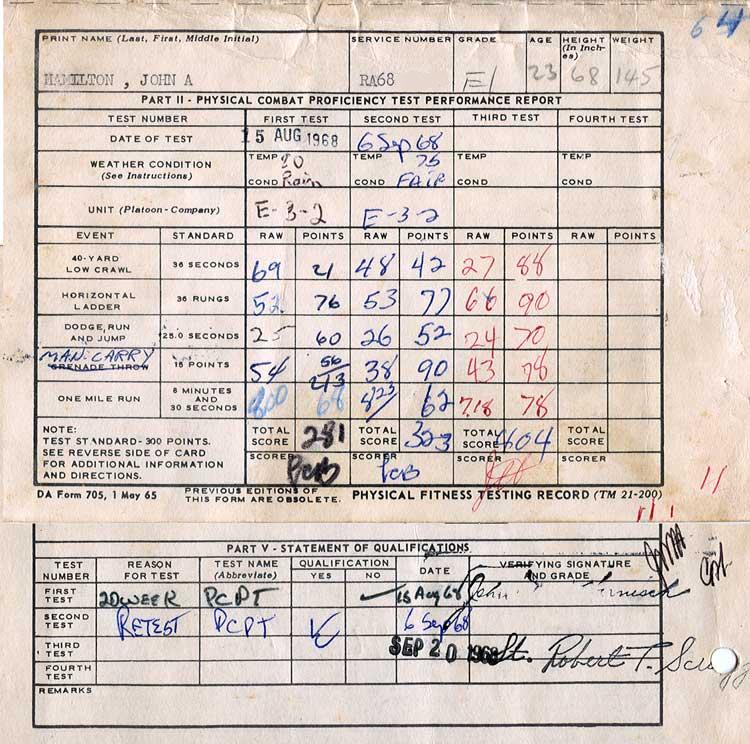 64
PRINT NAME (Last, First, Middle Initial) SERVICE NUMBER GRADE AGE HEIGHT (In Inches) WEIGHT
HAMILTON , JOHN A RA68 E1 23 68 145
PART II - PHYSICAL COMBAT PROFICIENCY TEST PERFORMANCE REPORT
TEST NUMBER FIRST TEST SECOND TEST THIRD TEST FOURTH TEST
DATE OF TEST 15 AUG 1968 6 Sep 68
WEATHER CONDITION (See Instructions) TEMP 80 TEMP 75 TEMP TEMP
COND Rain COND FAIR COND COND
UNIT (Platoon - Company) E-3-2 E-3-2
EVENT STANDARD RAW POINTS RAW POINTS RAW POINTS RAW POINTS
40-YARD LOW CRAWL 36 SECONDS 69 21 48 42 27 88
HORIZONTAL LADDER 36 RUNGS 52 76 53 77 66 90
DODGE, RUN AND JUMP 25.0 SECONDS 25 60 26 52 24 70
MAN-CARRY
GRENADE THROW 15 POINTS 54 56 38 90 43 78
213
ONE MILE RUN 8 MINUTES AND 30 SECONDS 800 68 8 23 62 7.18 78
NOTE:
TEST STANDARD - 300 POINTS.
SEE REVERSE SIDE OF CARD
FOR ADDITIONAL INFORMATION
AND DIRECTIONS.
TOTAL SCORE 281 TOTAL SCORE 323 TOTAL SCORE 404 TOTAL SCORE
SCORER PCB SCORER PCB SCORER SCORER
DA Form 705, 1 May 65 PREVIOUS EDITIONS OF THIS FORM ARE OBSOLETE. PHYSICAL FITNESS TESTING RECORD (TM 21-200)
PART V - STATEMENT OF QUALIFICATIONS
TEST NUMBER REASON FOR TEST TEST NAME (Abbreviate) QUALIFICATION YES NO DATE VERIFYING SIGNATURE AND GRADE
FIRST TEST 2D WEEK PCPT 15 Aug 68
SECOND TEST RETEST PCPT 6 Sep 68
THIRD TEST SEP 20 1968 Lt. Robert T.
FOURTH TEST
REMARKS